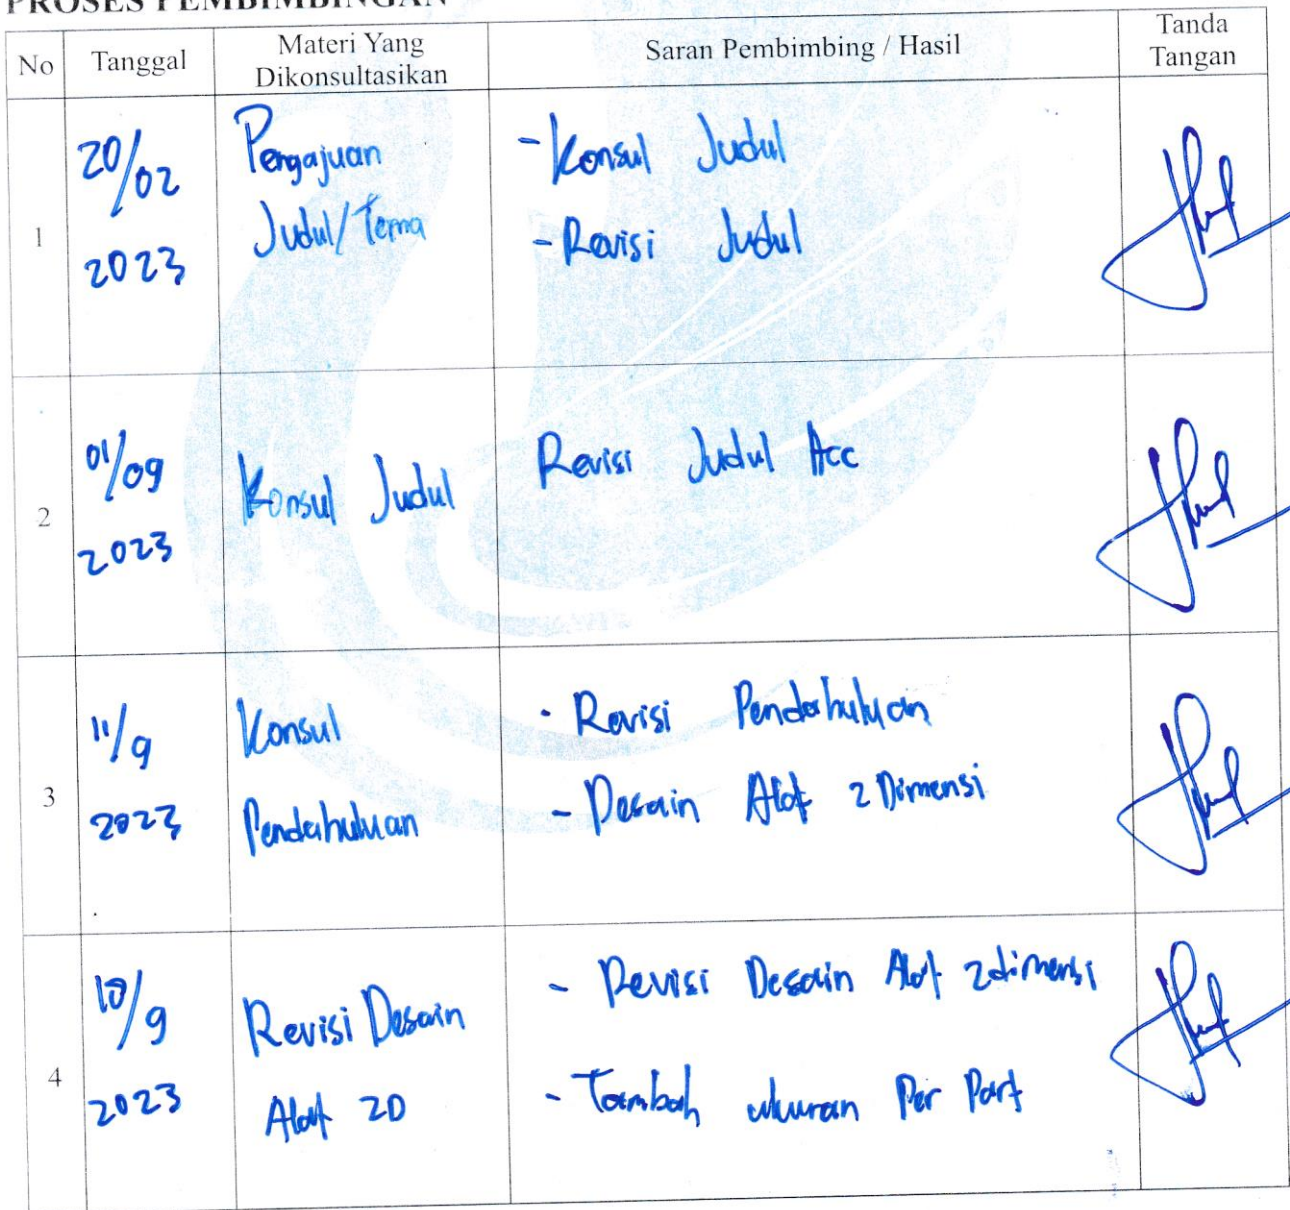 PROSES PEMBIMBINGAN
No Tanggal Materi Yang Dikonsultasikan Saran Pembimbing / Hasil Tanda Tangan
1
20/02
2023
Pengajuan
Judul/Tema
- Konsul Judul
- Revisi Judul
2
01/09
2023
Konsul Judul
Revisi Judul Acc
3
11/9
2023
Konsul
Pendahuluan
- Revisi Pendahuluan
- Desain Alat 2 Dimensi
4
/9
2023
Revisi Desain
Alat 2D
- Revisi Desain Alat 2dimensi
- Tambah ukuran Per Part